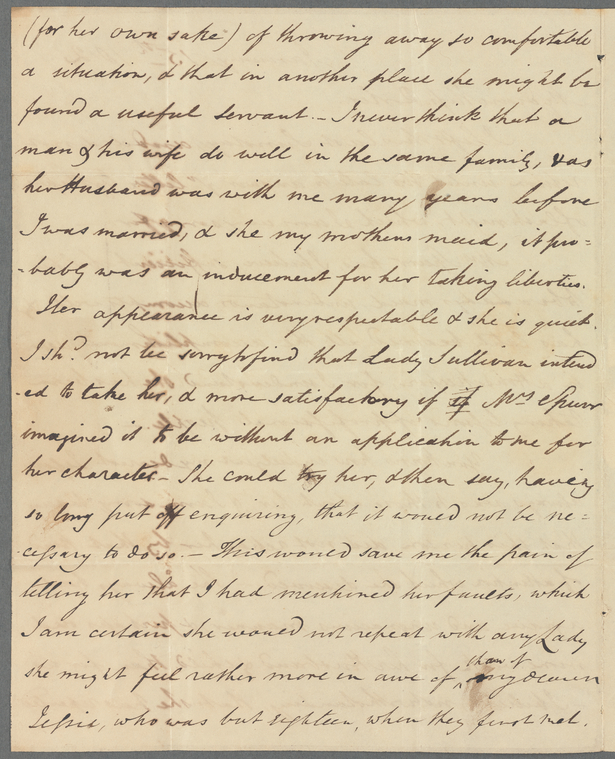 (for her own sake) of throwing away so comfortable
a situation, & that in another place she might be
found a useful servant. - I never think that a
man & his wife do well in the same family, & as
her Husband was with me many years before
I was married, & she my mothers maid, it pro=
=bably was an inducement for her taking liberties.
Her appearance is very respectable & she is quiet.
I shd. not be sorry to find that Lady Sullivan intend
-ed to take her, & more satisfactory if if Mrs Spurr
imagined it to be without an application to me for
her character - She could try her, & then say, having
so long put off enquiring, that it would not be ne=
cessary to do so. - This would save me the pain of
telling her that I had mentioned her faults, which
I am certain she would not repeat with any Lady
she might feel rather more in awe of, than of my dear
Jessie, who was but eighteen, when they first met.